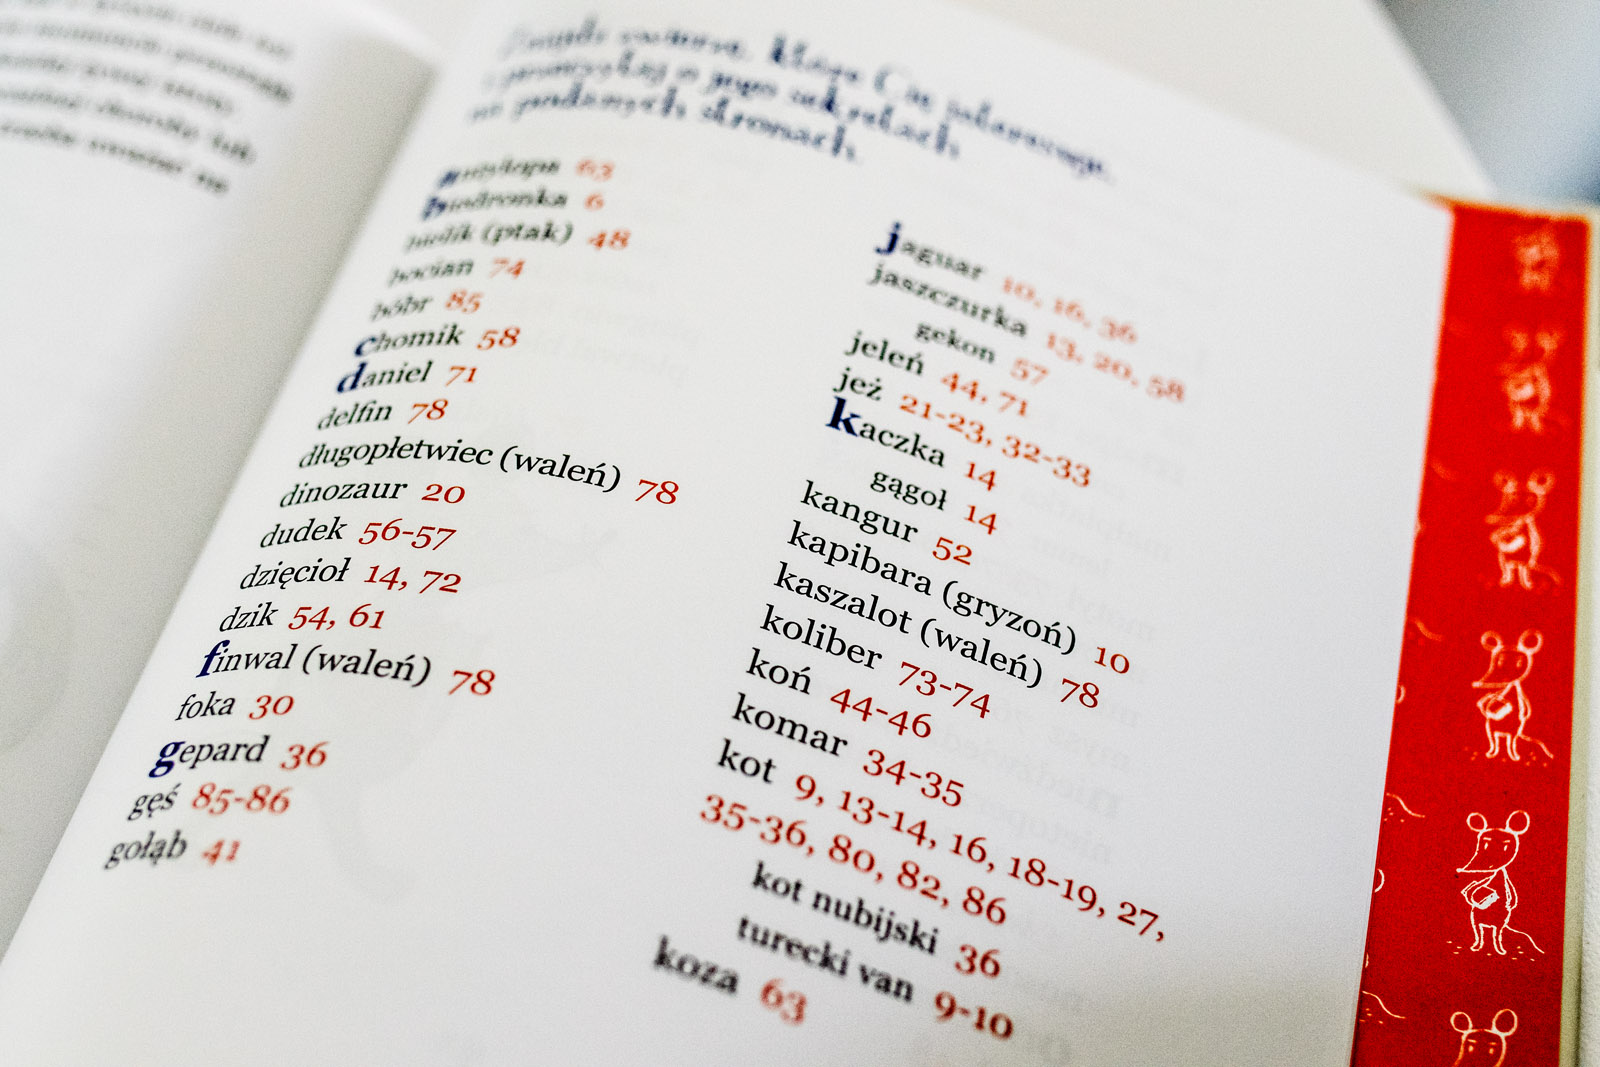 Znajdź zwierzę, które Cię interesuje,
i przeczytaj o jego sekretach
na podanych stronach.
antylopa 63
biedronka 6
bielik (ptak) 48
bocian 74
bóbr 85
chomik 58
daniel 71
delfin 78
długopłetwiec (waleń) 78
dinozaur 20
dudek 56-57
dzięcioł 14, 72
dzik 54, 61
finwal (waleń) 78
foka 30
gepard 36
gęś 85-86
gołąb 41
jaguar 10, 16, 36
jaszczurka 13, 20, 58
gekon 57
jeleń 44, 71
jeż 21-23, 32-33
kaczka 14
gągoł 14
kangur 52
kapibara (gryzoń) 10
kaszalot (waleń) 78
koliber 73-74
koń 44-46
komar 34-35
kot 9, 13-14, 16, 18-19, 27,
35-36, 80, 82, 86
kot nubijski 36
turecki van 9-10
koza 63